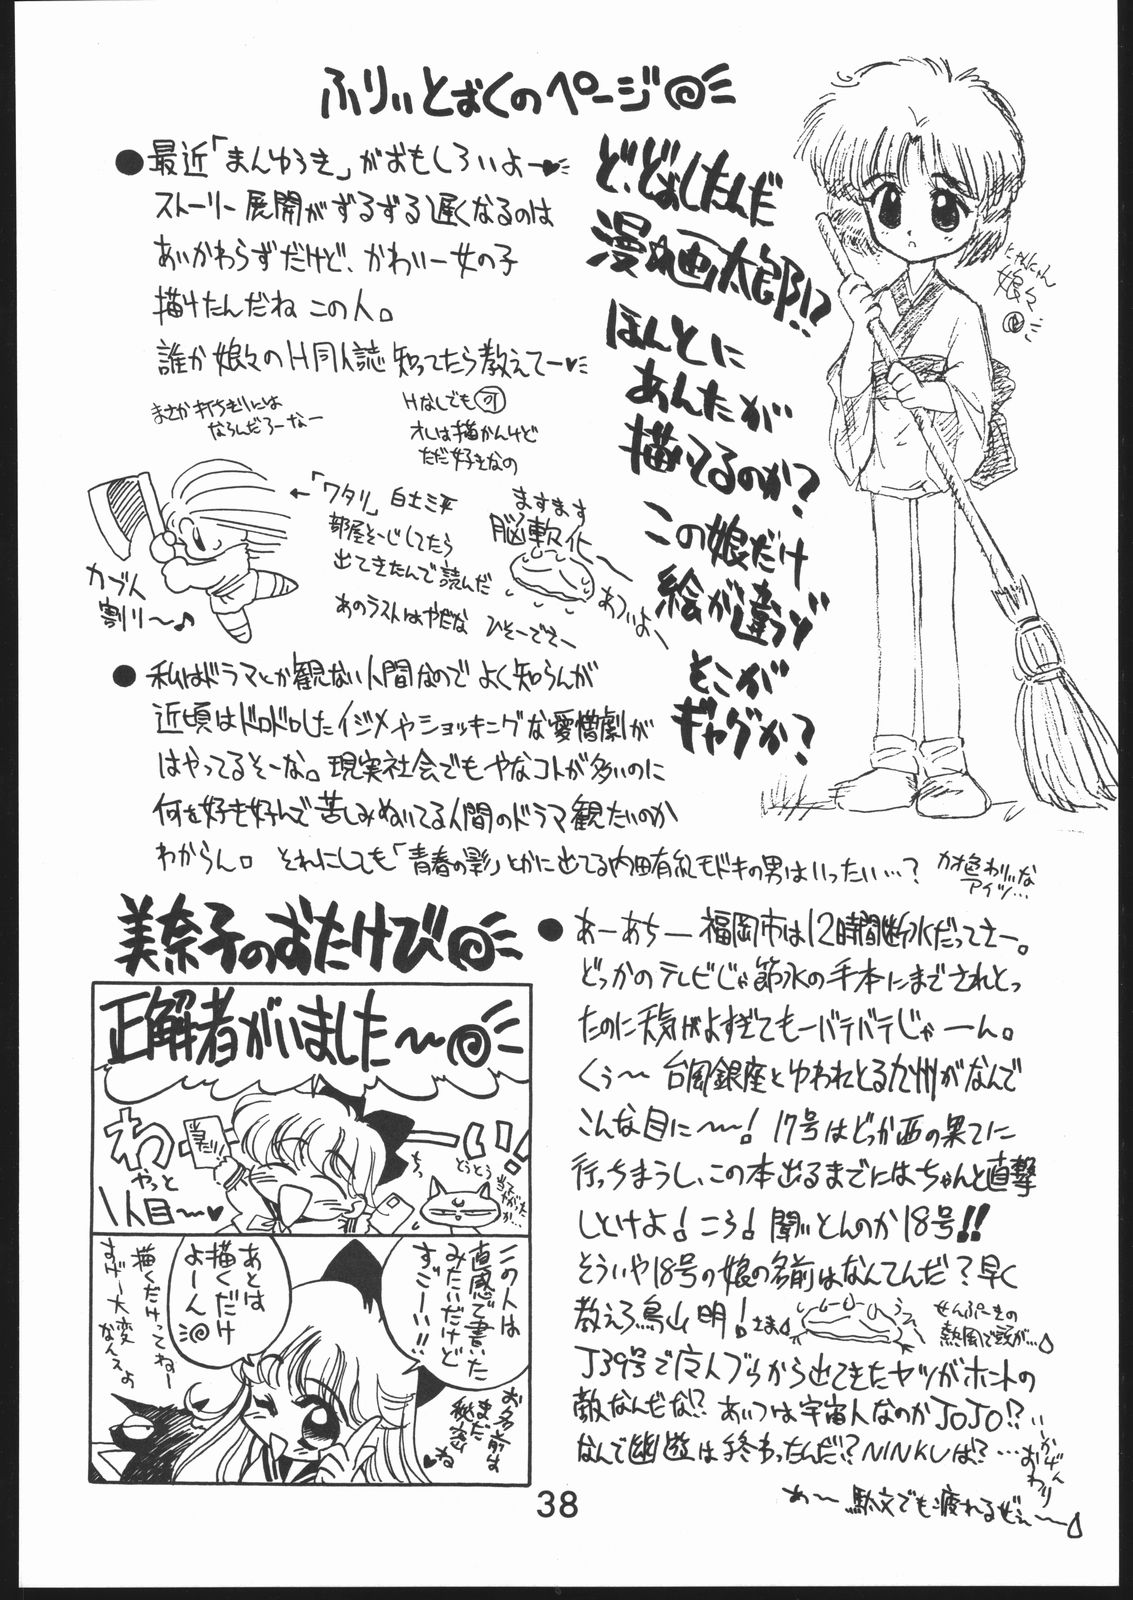 ふりぃとぉくのページ
●最近「まんゆうき」がおもしろいよー♥
ストーリー展開がずるずる遅くなるのは
あいかわらずだけど、かわいー女の子
描けたんだね この人。
誰か娘々のH同人誌知ってたら教えてー♥
まさか打ちぎりには
ならんだろーなー
Hなしでも可
オレは描かんけど
ただ好きなの
ど、どぉしたんだ
漫☆画太郎!?
ほんとに
あんたが
描いてるのか?
この娘だけ
絵が違うぞ
そこが
ギャグか?
にゃんにゃん
娘々
←「ワタリ」白土三平
部屋そーじしてたら
出てきたんで読んだ
あのラストはやだな ひそーでさー
ますます
脳軟化
あついよ〜
カブト
割り〜♪
●私はドラマとか観ない人間なのでよく知らんが
近頃はドロドロしたイジメやショッキングな愛憎劇が
はやってるそーな。現実社会でもやなコトが多いのに
何を好き好んで苦しみぬいてる人間のドラマ観たいのか
わからん。それにしても「青春の影」とかに出てる内田有紀モドキの男はいったい…?
カオ色わりぃな
アイツ…
美奈子のおたけび
正解者がいました〜
わーい!
当たり
やっと
1人目〜♥
ちっ
とうとう
この人は
直感で書いた
みたいだけど
すごーい!!
お名前は
まだ
秘密
ね♥
あとは
描くだけ
よーん
描くだけってねー
すげー大変
なんスよ
●あーあちー 福岡市は12時間断水だってさー。
どっかのテレビじゃ節水の手本にまでされとっ
たのに天気がよすぎてもーバテバテじゃーん。
くぅ〜 台風銀座とゆわれとる九州がなんで
こんな目に〜〜! 17号はどっか西の果てに
行っちまうし、この本出るまでにはちゃんと直撃
しといけよ!ころ!聞いとんのか18号!!
そういや18号の娘の名前はなんてんだ?早く
教えろ鳥山明!さま
せんぷーきの
熱風で頭が…
J39号で广人ブラから出てきたヤツがホントの
敵なんだな!? あいつは宇宙人なのかJOJO!?
なんで幽遊は終わったんだ!? NINKUは?…
いかげん
おわり
あ〜 駄文でも疲れるぜぇ〜〜
38